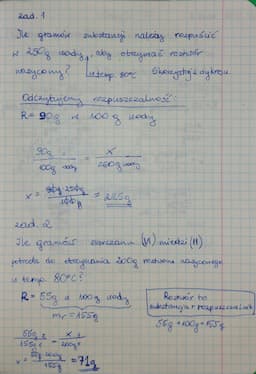 zad. 1
Ile gramów substancji należy rozpuścić
w 250g wody, aby otrzymać roztwór
nasycony? w temp. 80°C Skorzystaj z wykresu.
Odczytujemy rozpuszczalność:
R = 90g w 100g wody
90g / 100g wody = x / 250g wody
x = 90g · 250g / 100g = 225g
zad. 2
Ile gramów siarczanu (VI) miedzi (II)
potrzeba do otrzymania 200g roztworu nasyconego
w temp. 80°C?
R = 55g w 100g wody
mr = 155g
Roztwór to
substancja + rozpuszczalnik
55g + 100g = 155g
55g / 155g = x / 200g
x = 55g · 200g / 155g = 71g